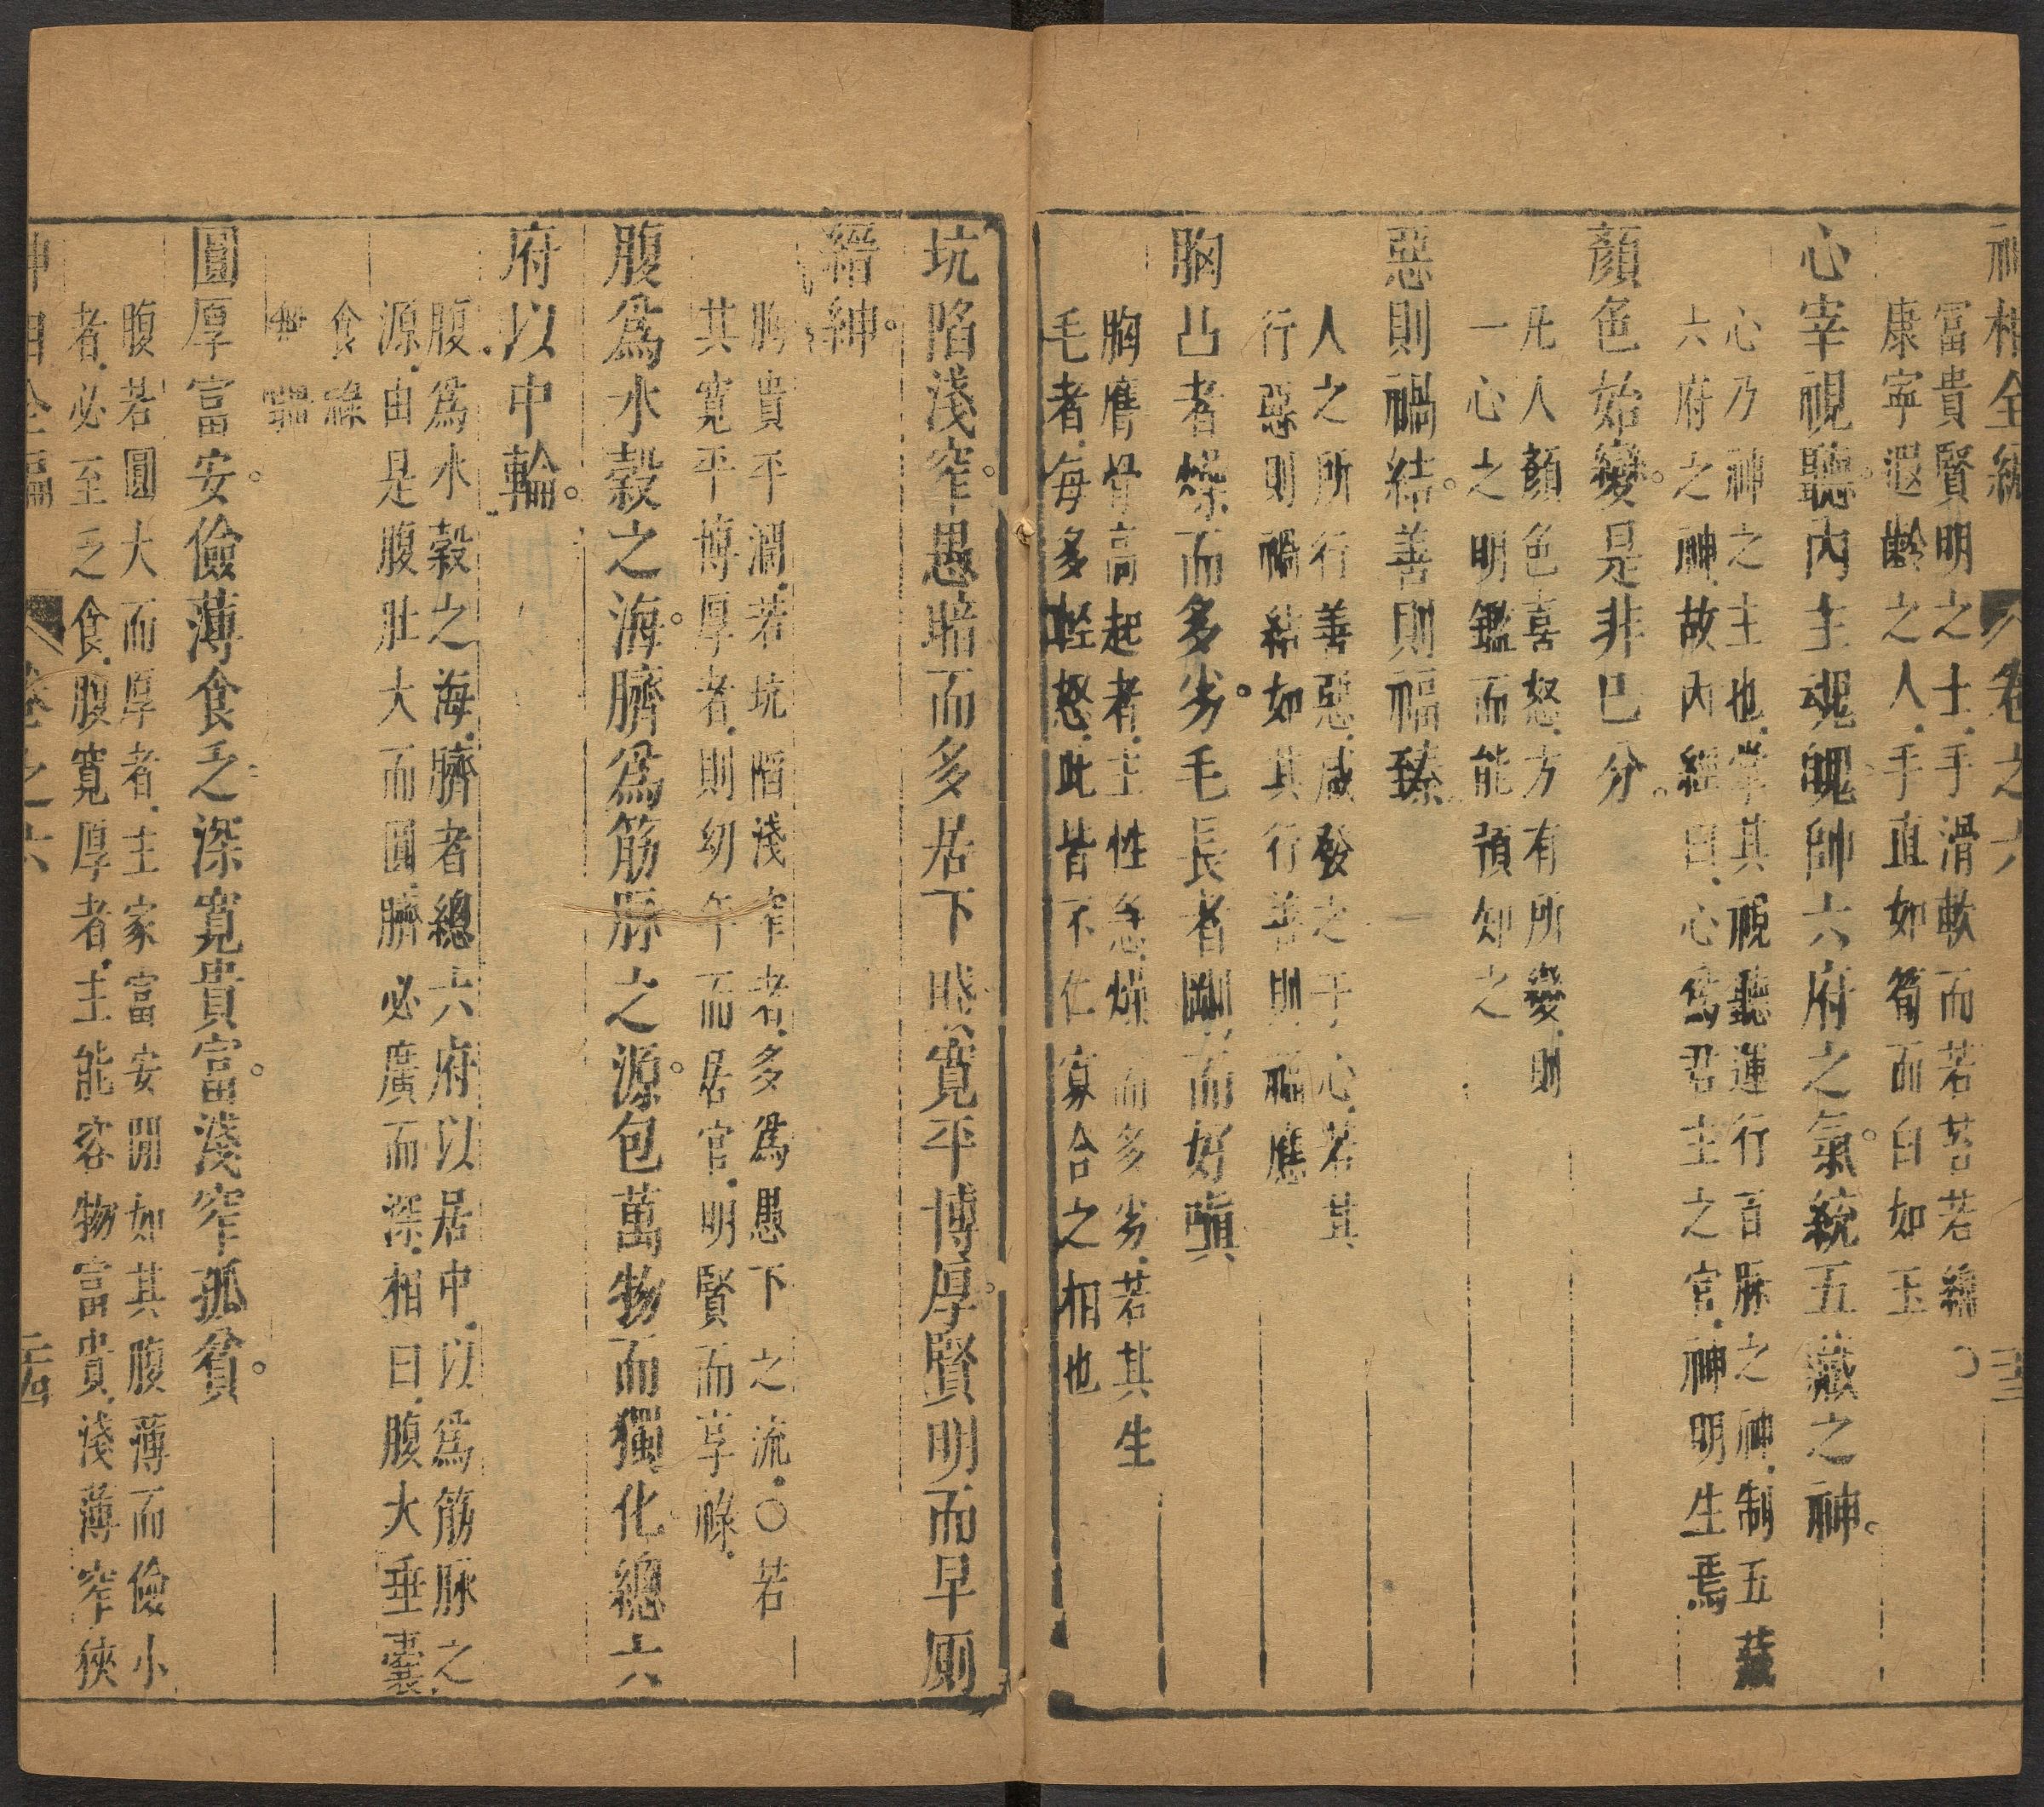 神相全編 卷之六
富貴賢明之士手滑軟而若苔若綿○
康寧遐齡之人手直如筍而白如玉
心宰視聽內主魂魄帥六府之氣統五藏之神
心乃神之主也掌其視聽運行百脉之神制五藏
六府之神故內經曰心爲君主之官神明生焉
顏色始變是非已分
凡人顏色喜怒方有所變則
一心之明鑑而能預知之
惡則禍結善則福臻
人之所行善惡咸發之于心若其
行惡則禍結如其行善則福應
胸凸者燥而多劣毛長者剛而好嗔
胸膺骨高起者主性急燥而多劣若其生
毛者每多輕怒此皆不仁寡合之相也
坑陷淺窄愚暗而多居下賤寬平博厚賢明而早厠
縉紳
胸貴平濶若坑陷淺窄者多爲愚下之流○若
其寬平博厚者則幼年而居官明賢而享祿
腹爲水穀之海臍爲筋脉之源包萬物而獨化總六
府以中輪
腹爲水穀之海臍者總六府以居中以爲筋脉之
源由是腹肚大而圓臍必廣而深相曰腹大垂囊
食祿
圓厚富安儉薄食乏深寬貴富淺窄孤貧
腹若圓大而厚者主家富安閒如其腹薄而儉小
者必至乏食腹寬厚者主能容物富貴淺薄窄狹
神相全編 卷之六